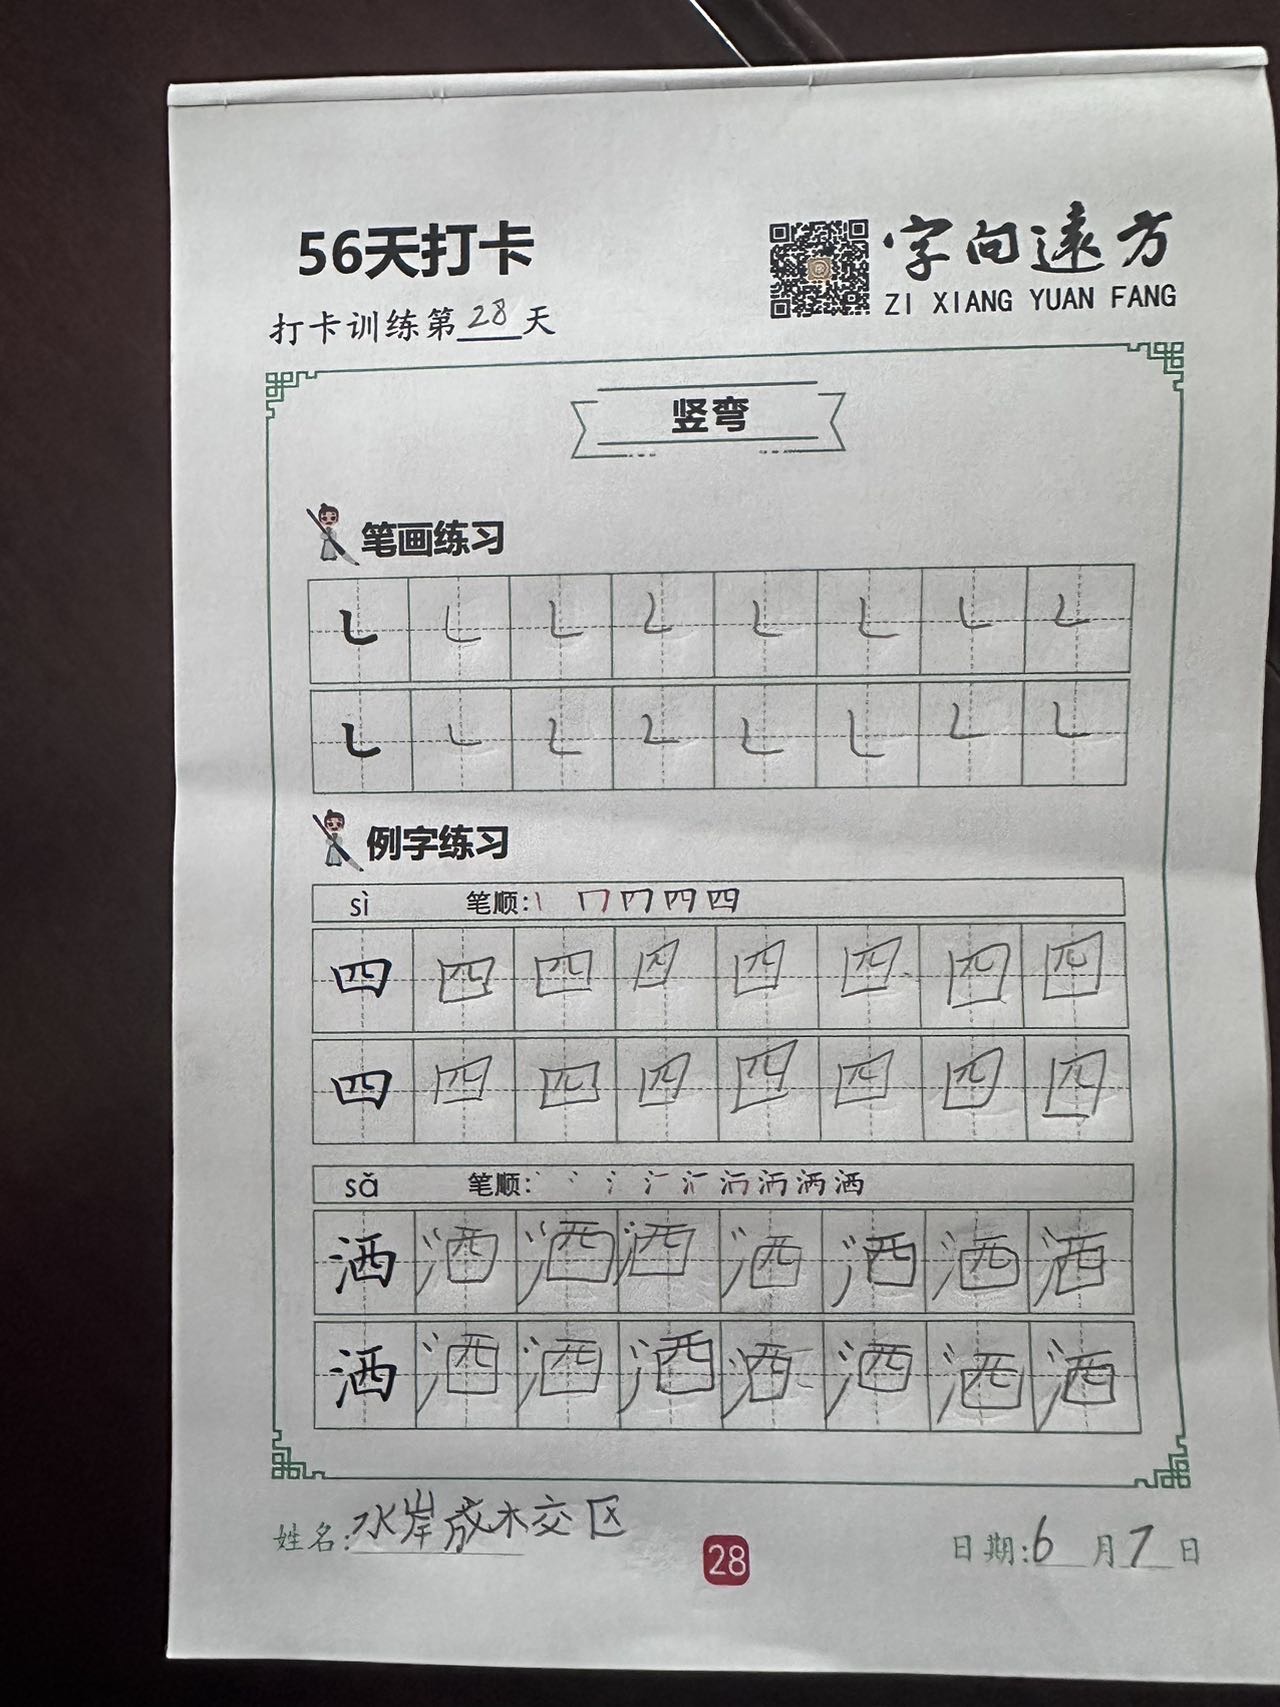 56天打卡
字向遠方
ZI XIANG YUAN FANG
打卡训练第28天
竖弯
笔画练习
㇄ ㇄ ㇄ ㇄ ㇄ ㇄ ㇄ ㇄
㇄ ㇄ ㇄ ㇄ ㇄ ㇄ ㇄ ㇄
例字练习
sì 笔顺:
四 四 四 四 四 四 四 四
四 四 四 四 四 四 四 四
sǎ 笔顺:
洒 洒 洒 洒 洒 洒 洒 洒
洒 洒 洒 洒 洒 洒 洒 洒
姓名:水岸成木交区
28
日期:6月7日